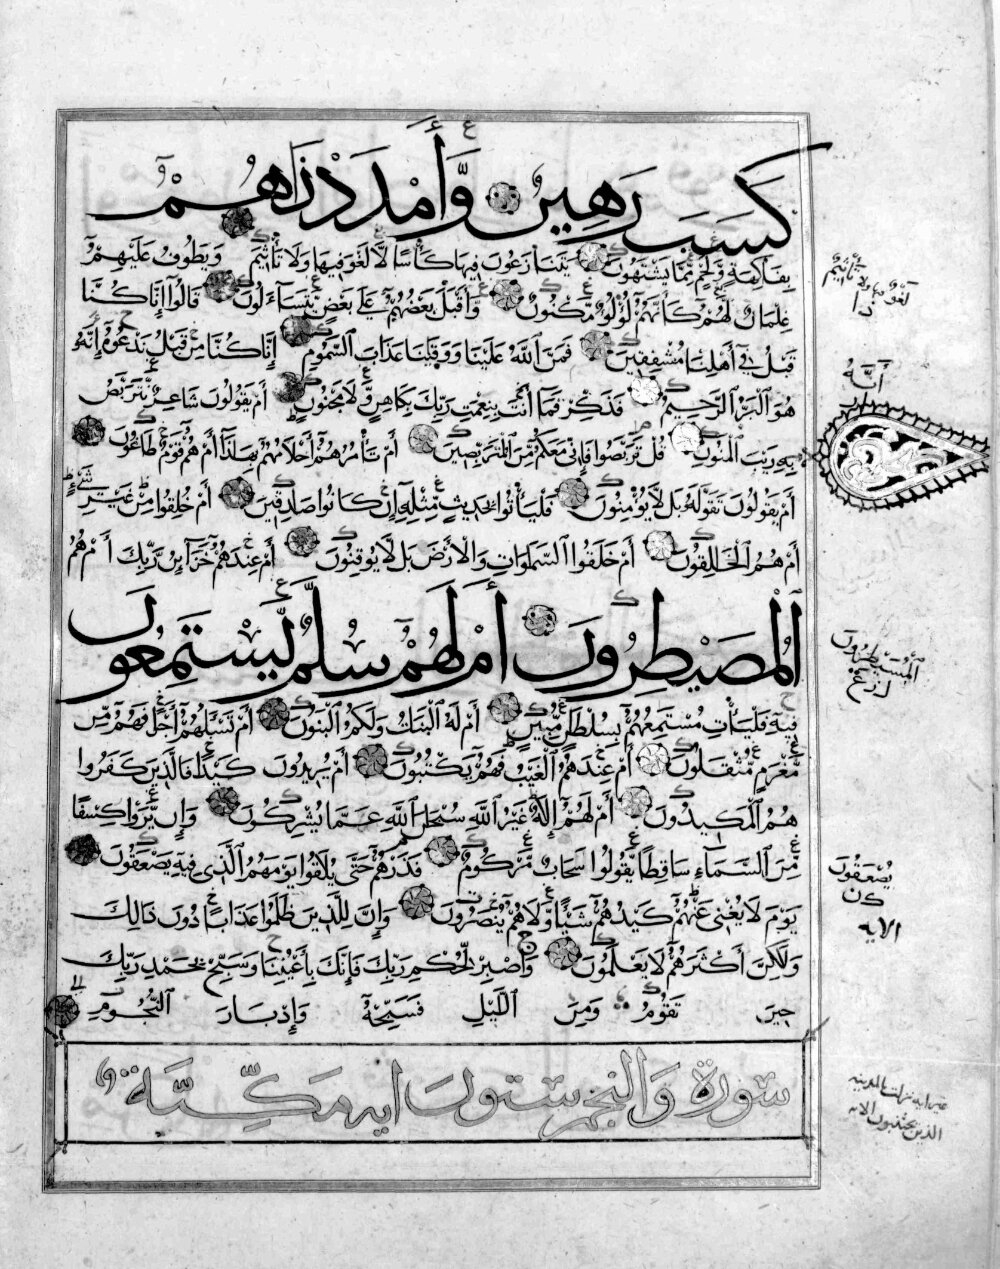 كَسَبَ رَهِينٌ وَّأَمْدَدْنَاهُمْ
بِفَاكِهَةٍ وَلَحْمٍ مِّمَّا يَشْتَهُونَ يَتَنَازَعُونَ فِيهَا كَأْسًا لَّا لَغْوَ فِيهَا وَلَا تَأْثِيمَ وَيَطُوفُ عَلَيْهِمْ
غِلْمَانٌ لَهُمْ كَأَنَّهُمْ لُؤْلُؤٌ مَّكْنُونٌ وَأَقْبَلَ بَعْضُهُمْ عَلَى بَعْضٍ يَتَسَاءَلُونَ قَالُوا إِنَّا كُنَّا
قَبْلُ فِي أَهْلِنَا مُشْفِقِينَ فَمَنَّ اللَّهُ عَلَيْنَا وَوَقَانَا عَذَابَ السَّمُومِ إِنَّا كُنَّا مِنْ قَبْلُ نَدْعُوهُ إِنَّهُ
هُوَ الْبَرُّ الرَّحِيمُ فَذَكِّرْ فَمَا أَنْتَ بِنِعْمَتِ رَبِّكَ بِكَاهِنٍ وَّلَا مَجْنُونٍ أَمْ يَقُولُونَ شَاعِرٌ نَتَرَبَّصُ
بِهِ رَيْبَ الْمَنُونِ قُلْ تَرَبَّصُوا فَإِنِّي مَعَكُمْ مِّنَ الْمُتَرَبِّصِينَ أَمْ تَأْمُرُهُمْ أَحْلَامُهُمْ بِهَذَا أَمْ هُمْ قَوْمٌ طَاغُونَ
أَمْ يَقُولُونَ تَقَوَّلَهُ بَل لَّا يُؤْمِنُونَ فَلْيَأْتُوا بِحَدِيثٍ مِّثْلِهِ إِنْ كَانُوا صَادِقِينَ أَمْ خُلِقُوا مِنْ غَيْرِ شَيْءٍ
أَمْ هُمُ الْخَالِقُونَ أَمْ خَلَقُوا السَّمَاوَاتِ وَالْأَرْضَ بَل لَّا يُوقِنُونَ أَمْ عِنْدَهُمْ خَزَائِنُ رَبِّكَ أَمْ هُمُ
الْمُصَيْطِرُونَ أَمْ لَهُمْ سُلَّمٌ يَّسْتَمِعُونَ
فِيهِ فَلْيَأْتِ مُسْتَمِعُهُمْ بِسُلْطَانٍ مُّبِينٍ أَمْ لَهُ الْبَنَاتُ وَلَكُمُ الْبَنُونَ أَمْ تَسْأَلُهُمْ أَجْرًا فَهُمْ مِّنْ
مَّغْرَمٍ مُّثْقَلُونَ أَمْ عِنْدَهُمُ الْغَيْبُ فَهُمْ يَكْتُبُونَ أَمْ يُرِيدُونَ كَيْدًا فَالَّذِينَ كَفَرُوا
هُمُ الْمَكِيدُونَ أَمْ لَهُمْ إِلَهٌ غَيْرُ اللَّهِ سُبْحَانَ اللَّهِ عَمَّا يُشْرِكُونَ وَإِنْ يَّرَوْا كِسْفًا
مِّنَ السَّمَاءِ سَاقِطًا يَّقُولُوا سَحَابٌ مَّرْكُومٌ فَذَرْهُمْ حَتَّى يُلَاقُوا يَوْمَهُمُ الَّذِي فِيهِ يَصْعَقُونَ
يَوْمَ لَا يُغْنِي عَنْهُمْ كَيْدُهُمْ شَيْئًا وَّلَا هُمْ يُنْصَرُونَ وَإِنَّ لِلَّذِينَ ظَلَمُوا عَذَابًا دُونَ ذَالِكَ
وَلَاكِنَّ أَكْثَرَهُمْ لَا يَعْلَمُونَ وَاصْبِرْ لِحُكْمِ رَبِّكَ فَإِنَّكَ بِأَعْيُنِنَا وَسَبِّحْ بِحَمْدِ رَبِّكَ
حِينَ تَقُومُ وَمِنَ اللَّيْلِ فَسَبِّحْهُ وَإِدْبَارَ النُّجُومِ
سورة وَالنجم ستون ايه مَكِّيَّة
لغو فيها ولا تأثيم
أنه
المُسَيْطِرُونَ
يَصْعَقُونَ
الايه